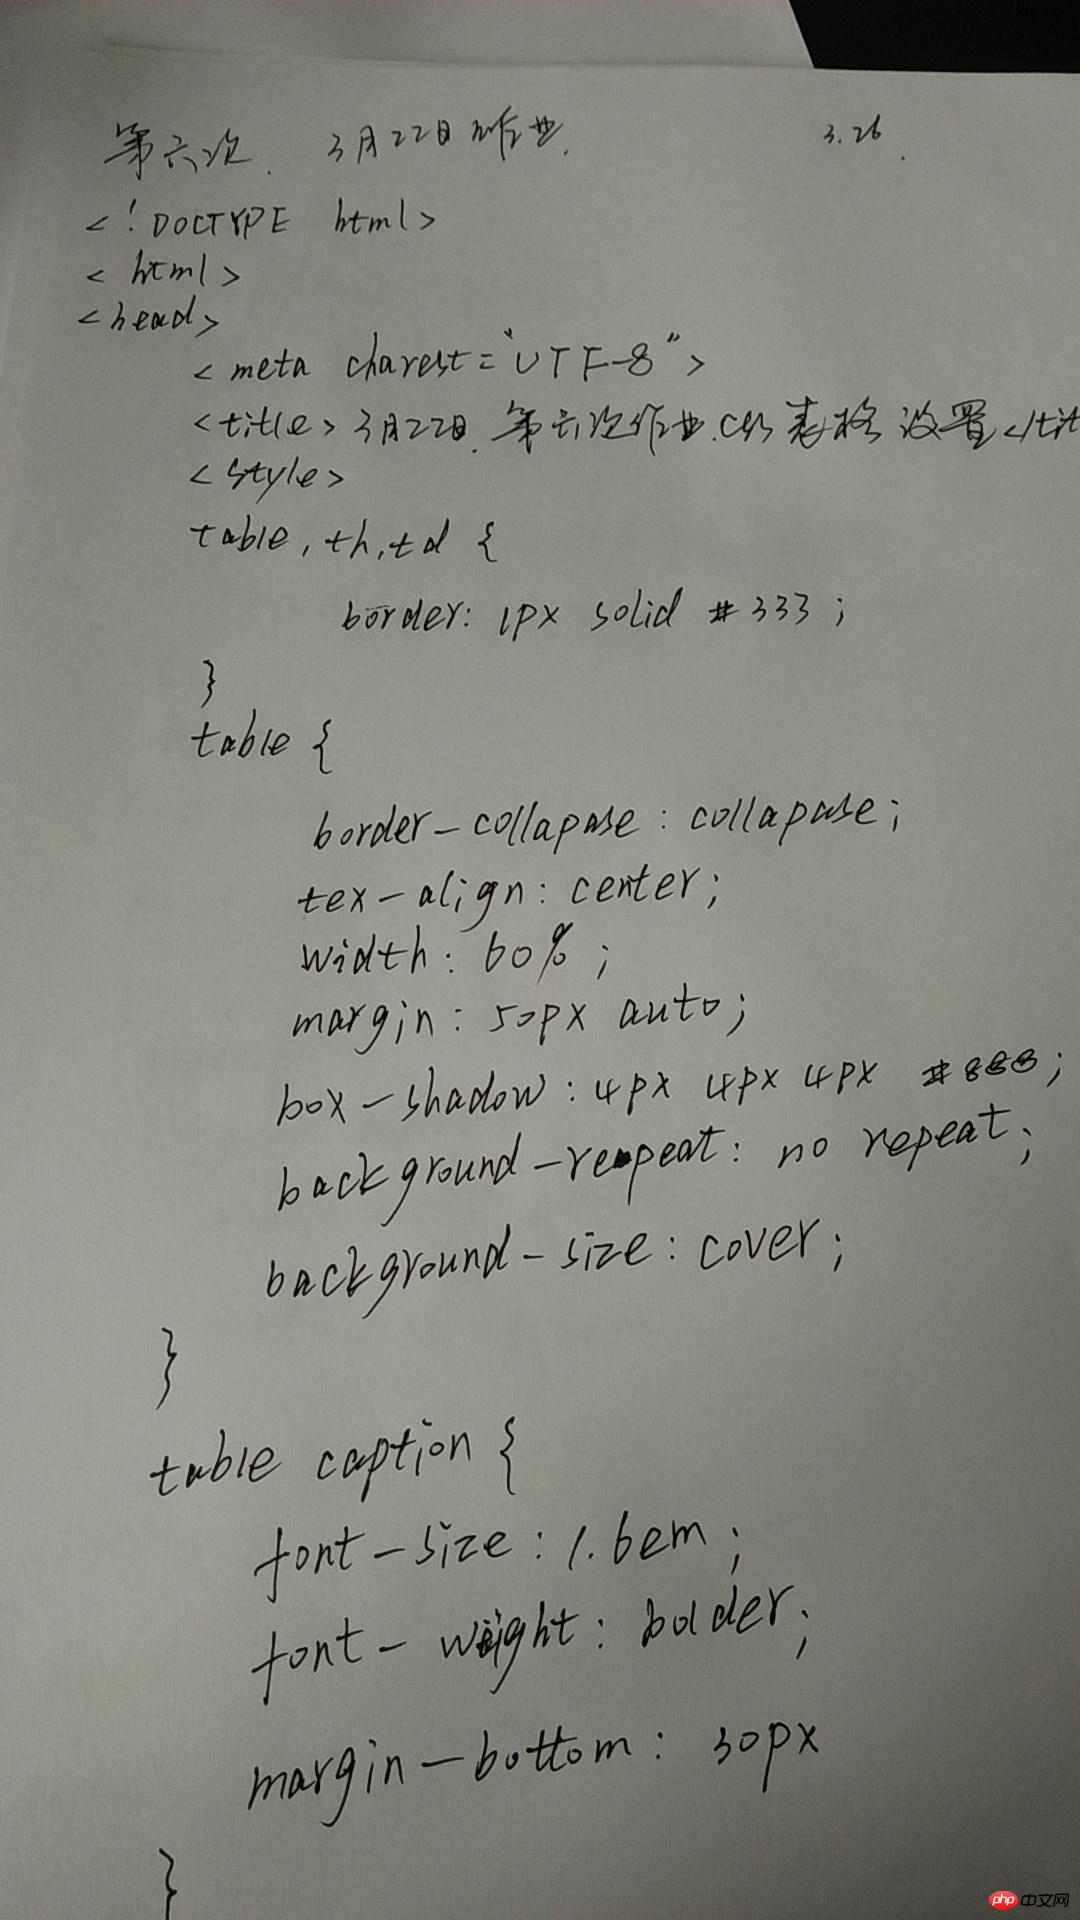 第六次. 3月22日作业. 3.26.
<!DOCTYPE html>
<html>
<head>
<meta charest="UTF-8">
<title>3月22日.第六次作业.css表格设置</tit
<style>
table, th, td {
border: 1px solid #333;
}
table {
border-collapase: collapase;
tex-align: center;
width: 60%;
margin: 50px auto;
box-shadow: 4px 4px 4px #888;
background-repeat: no repeat;
background-size: cover;
}
table caption {
font-size: 1.6em;
font-weight: bolder;
margin-bottom: 30px
}
php 中文网